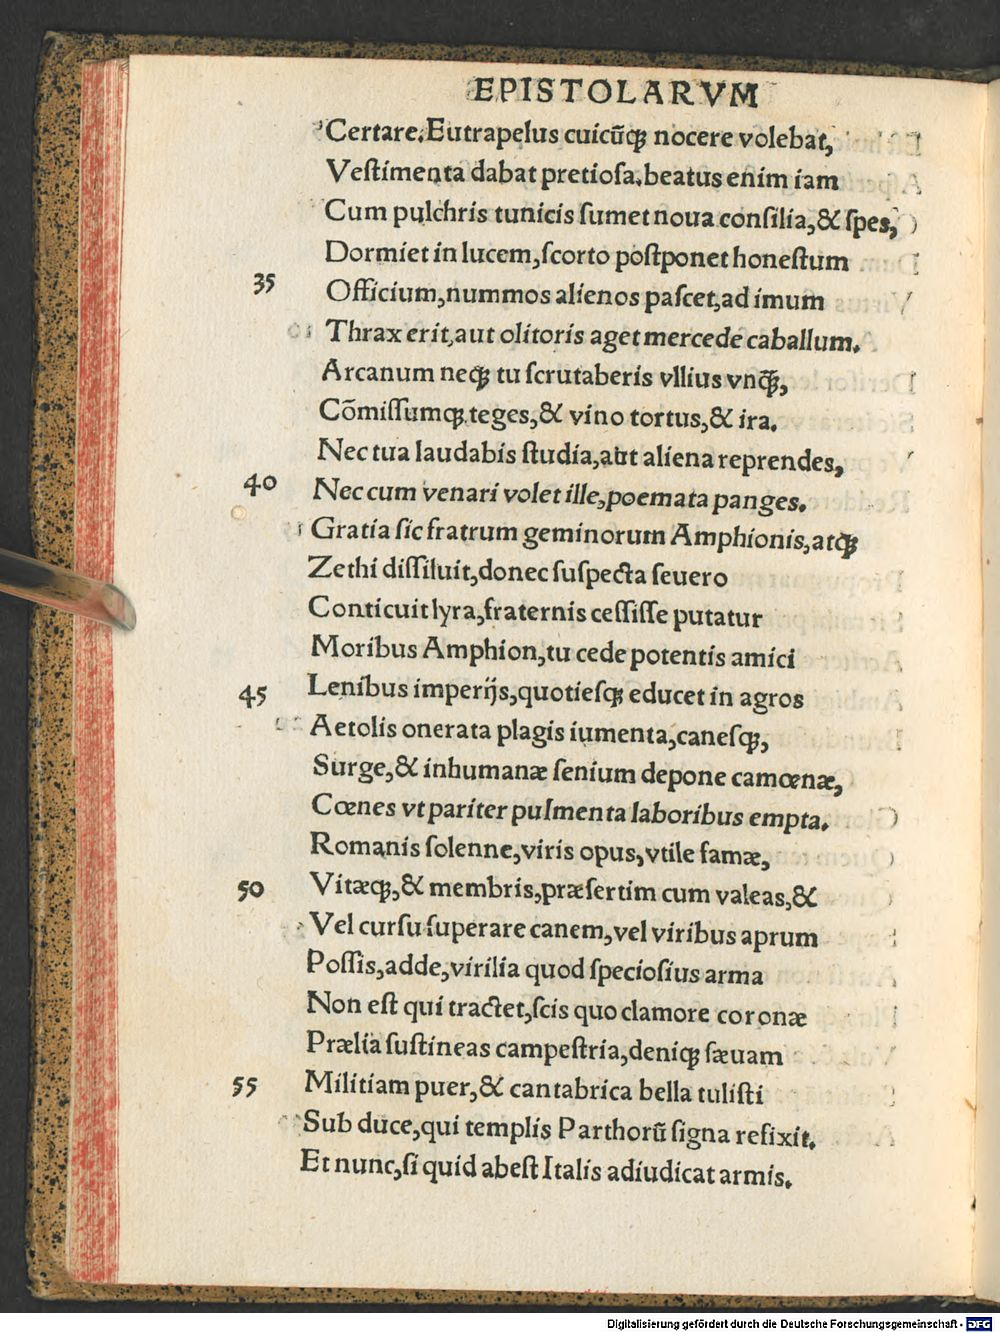 EPISTOLARVM
Certare. Eutrapelus cuicũqꝫ nocere volebat,
Veſtimenta dabat pretioſa. beatus enim iam
Cum pulchris tunicis ſumet noua conſilia, & ſpes,
Dormiet in lucem, ſcorto poſtponet honeſtum
35 Officium, nummos alienos paſcet, ad imum
Thrax erit, aut olitoris aget mercede caballum.
Arcanum neqꝫ tu ſcrutaberis vllius vnq̃ꝫ,
Cõmiſſumqꝫ teges, & vino tortus, & ira.
Nec tua laudabis ſtudia, aut aliena reprendes,
40 Nec cum venari volet ille, poemata panges.
Gratia ſic fratrum geminorum Amphionis, atqꝫ
Zethi diſſiluit, donec ſuſpecta ſeuero
Conticuit lyra, fraternis ceſſiſſe putatur
Moribus Amphion, tu cede potentis amici
45 Lenibus imperijs, quotieſqꝫ educet in agros
Aetolis onerata plagis iumenta, caneſqꝫ,
Surge, & inhumanæ ſenium depone camœnæ,
Cœnes vt pariter pulmenta laboribus empta.
Romanis ſolenne, viris opus, vtile famæ,
50 Vitæqꝫ, & membris, præſertim cum valeas, &
Vel curſu ſuperare canem, vel viribus aprum
Poſſis, adde, virilia quod ſpecioſius arma
Non eſt qui tractet, ſcis quo clamore coronæ
Prælia ſuſtineas campeſtria, deniqꝫ ſæuam
55 Militiam puer, & cantabrica bella tuliſti
Sub duce, qui templis Parthorũ ſigna refixit.
Et nunc, ſi quid abeſt Italis adiudicat armis.
Digitalisierung gefördert durch die Deutsche Forschungsgemeinschaft - DFG